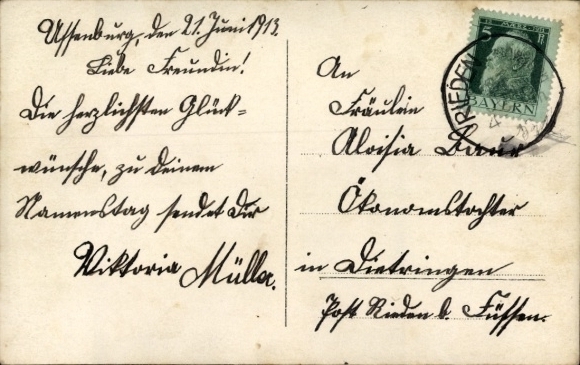 Ussenburg, den 21. Juni 1913.
Liebe Freundin!
Die herzlichsten Glück-
wünsche, zu Deinem
Namenstag sendet Dir
Viktoria Müller.
An
Fräulein
Aloisia Baur
Ökonomstochter
in Dietringen
Post Rieden b. Füssen.
5
BAYERN
RIEDEN